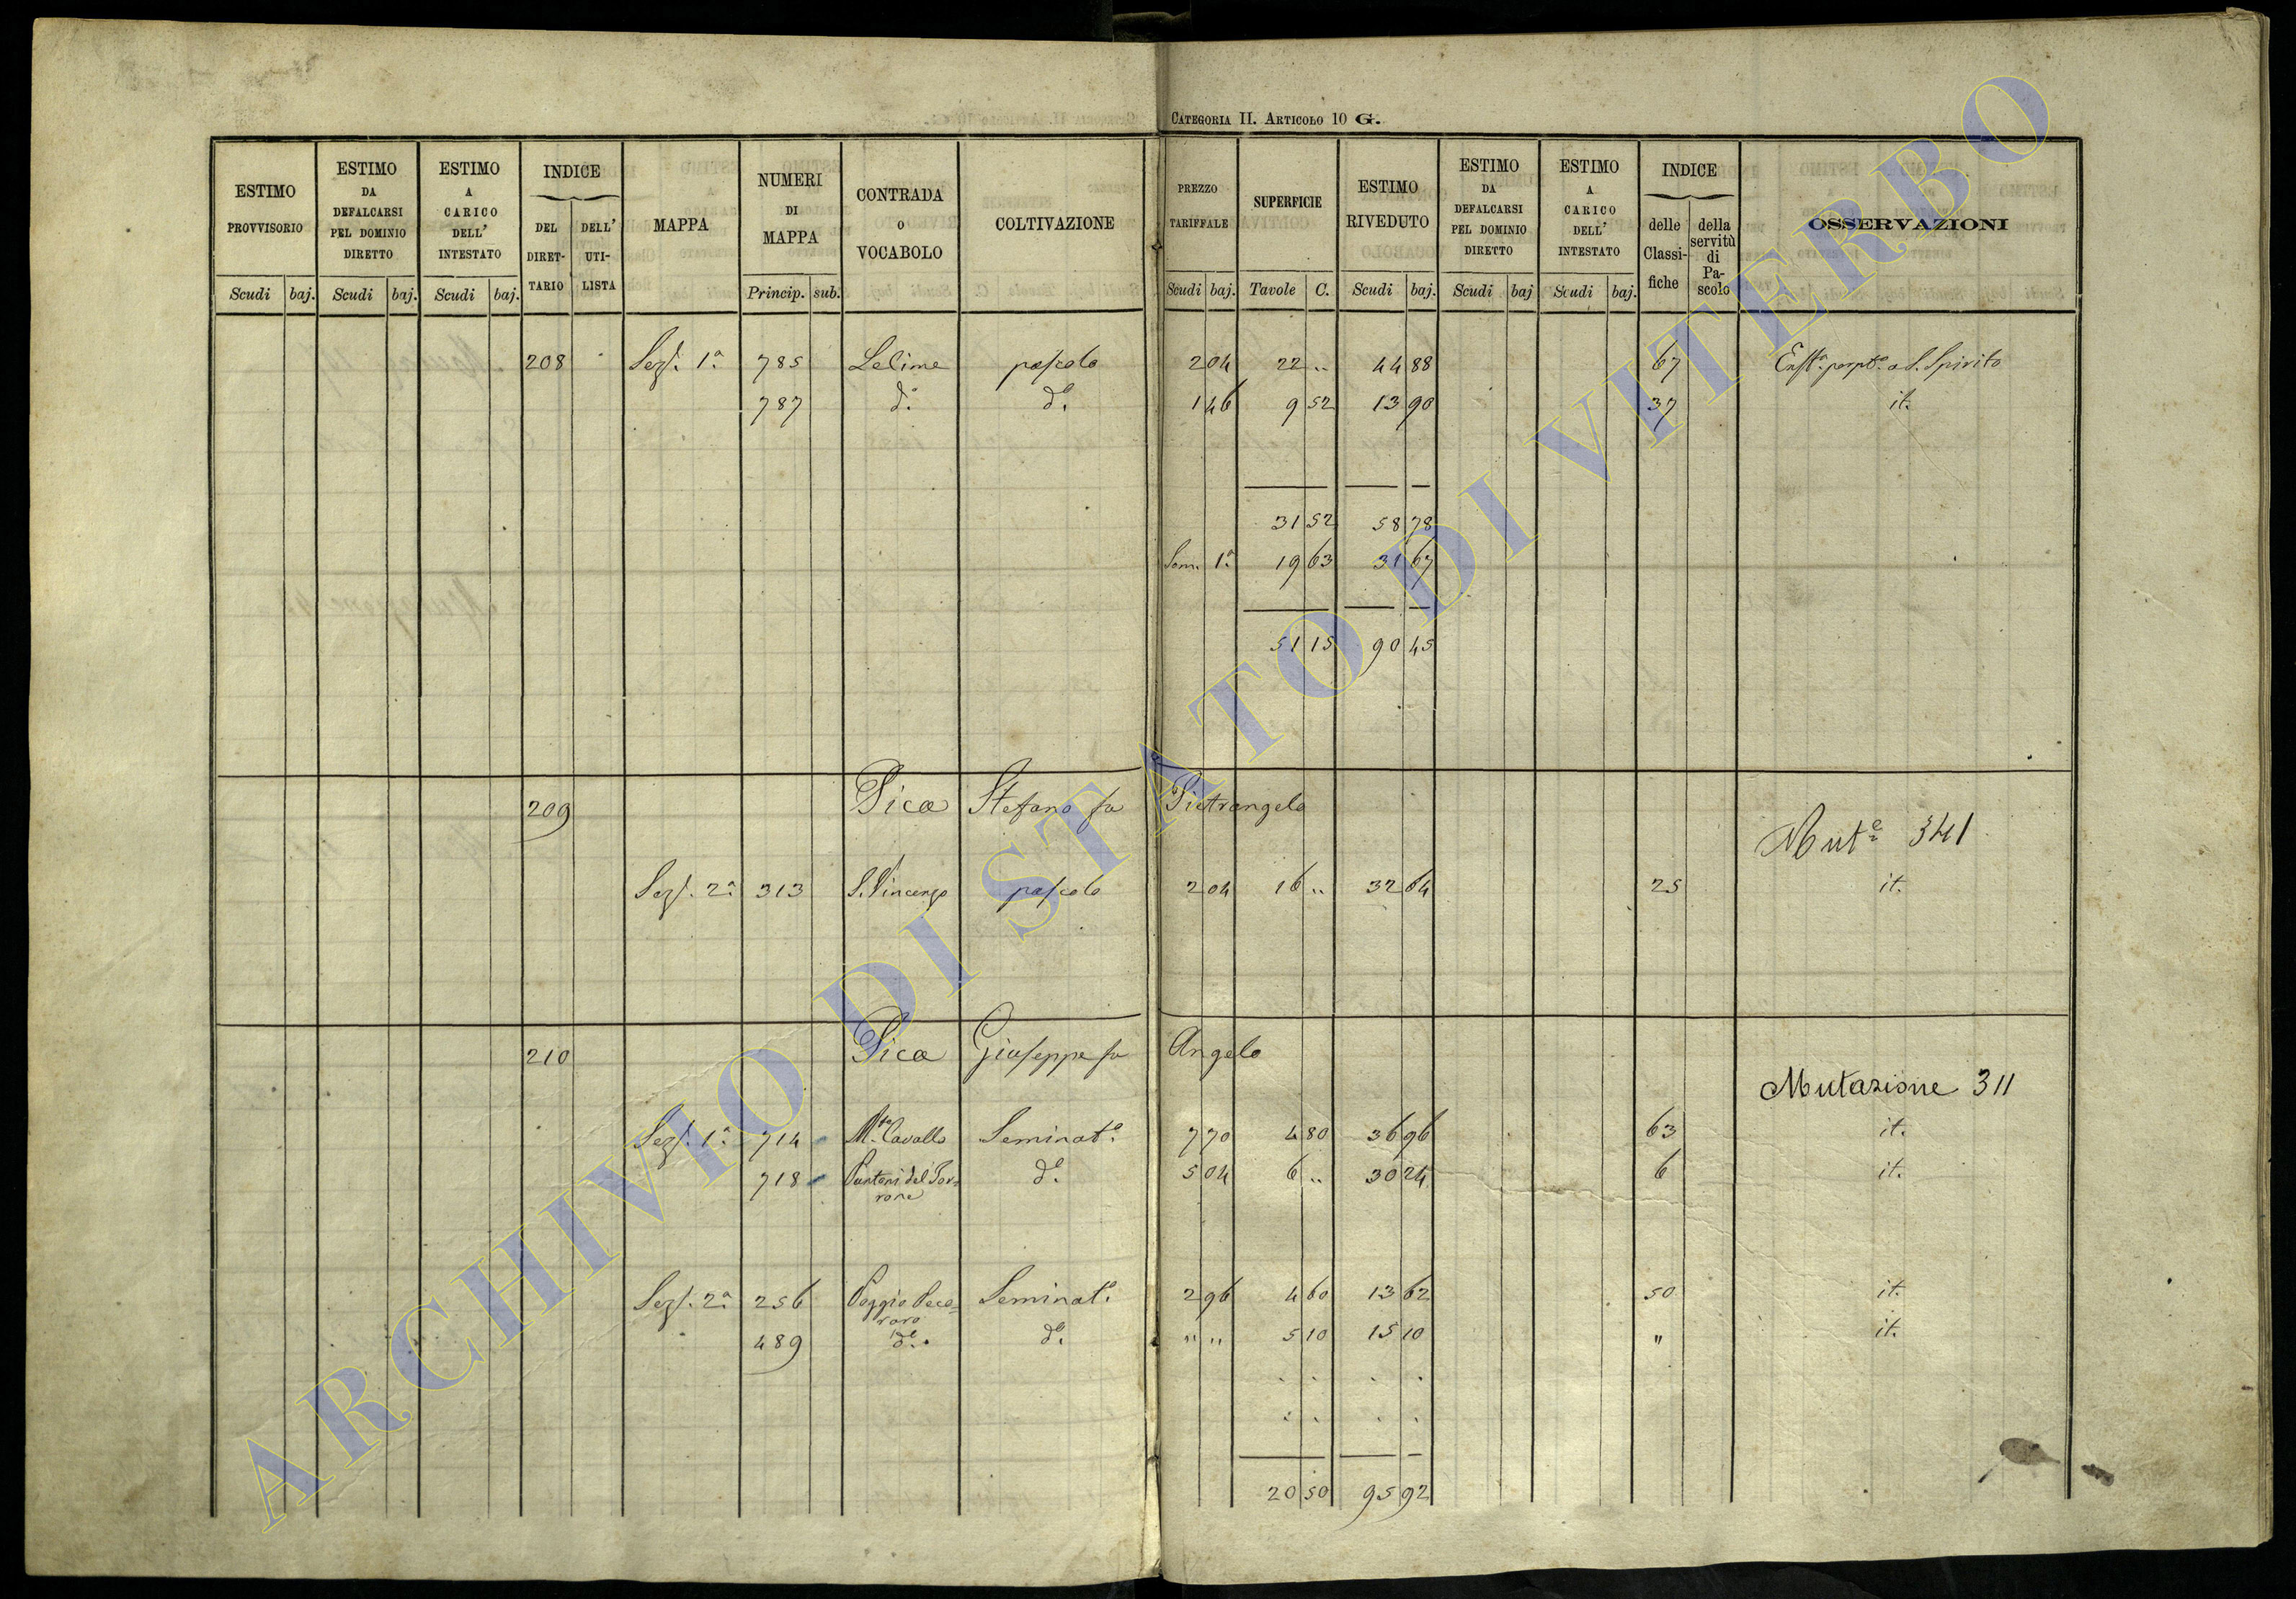 CATEGORIA II. ARTICOLO 10 G.
ESTIMO PROVVISORIO Scudi baj. ESTIMO DA DEFALCARSI PEL DOMINIO DIRETTO Scudi baj. ESTIMO A CARICO DELL' INTESTATO Scudi baj. INDICE DEL DIRET-TARIO DELL' UTI-LISTA MAPPA NUMERI DI MAPPA Princip. sub. CONTRADA O VOCABOLO COLTIVAZIONE PREZZO TARIFFALE Scudi baj. SUPERFICIE Tavole C. ESTIMO RIVEDUTO Scudi baj. ESTIMO DA DEFALCARSI PEL DOMINIO DIRETTO Scudi baj ESTIMO A CARICO DELL' INTESTATO Scudi baj. INDICE delle Classi-fiche della servitù di Pa-scolo OSSERVAZIONI
208 Sez. 1ª 785 Lelime pascolo 2 04 22 .. 44 88 67 Enf. perpt. a S. Spirito
787 d.º d.º 1 46 9 52 13 90 37 it.
31 52 58 78
Som. 1ª 19 63 31 67
51 15 90 45
209 Pica Stefano fu Pietrangelo
Mut.e 341
Sez. 2ª 313 S. Vincenzo pascolo 2 04 16 .. 32 64 25 it.
210 Pica Giuseppe fu Angelo
Mutazione 311
Sez. 1ª 714 M.te Cavallo Seminat.º 7 70 4 80 36 96 63 it.
718 Puntoni del Tor=
rone d.º 5 04 6 .. 30 24 6 it.
Sez. 2ª 256 Poggio Peco=
raro Seminat.º 2 96 4 60 13 62 50 it.
489 d.º d.º " " 5 10 15 10 " it.
20 50 95 92
ARCHIVIO DI STATO DI VITERBO